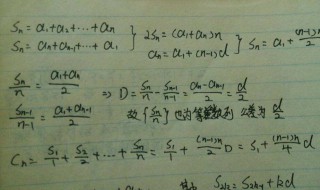 Sn = a1+a2+…+an } 2Sn = (a1+an)n } Sn = a1 + (n-1)n/2
Sn = an+an-1+…+a1 } an = a1+(n-1)d
Sn/n = (a1+an)/2
Sn-1/n-1 = (a1+an-1)/2 ⇒ D = Sn/n - Sn-1/n-1 = (an-an-1)/2 = d/2
故{Sn/n}也为等差数列 公差为 d/2
Cn = S1/1 + S2/2 + … + Sn/n = S1/1 + (n-1)n/2 D = S1 + (n-1)n/4 d